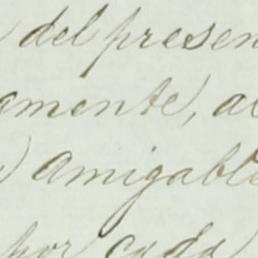 del presen
amente, a
amigable
por cada